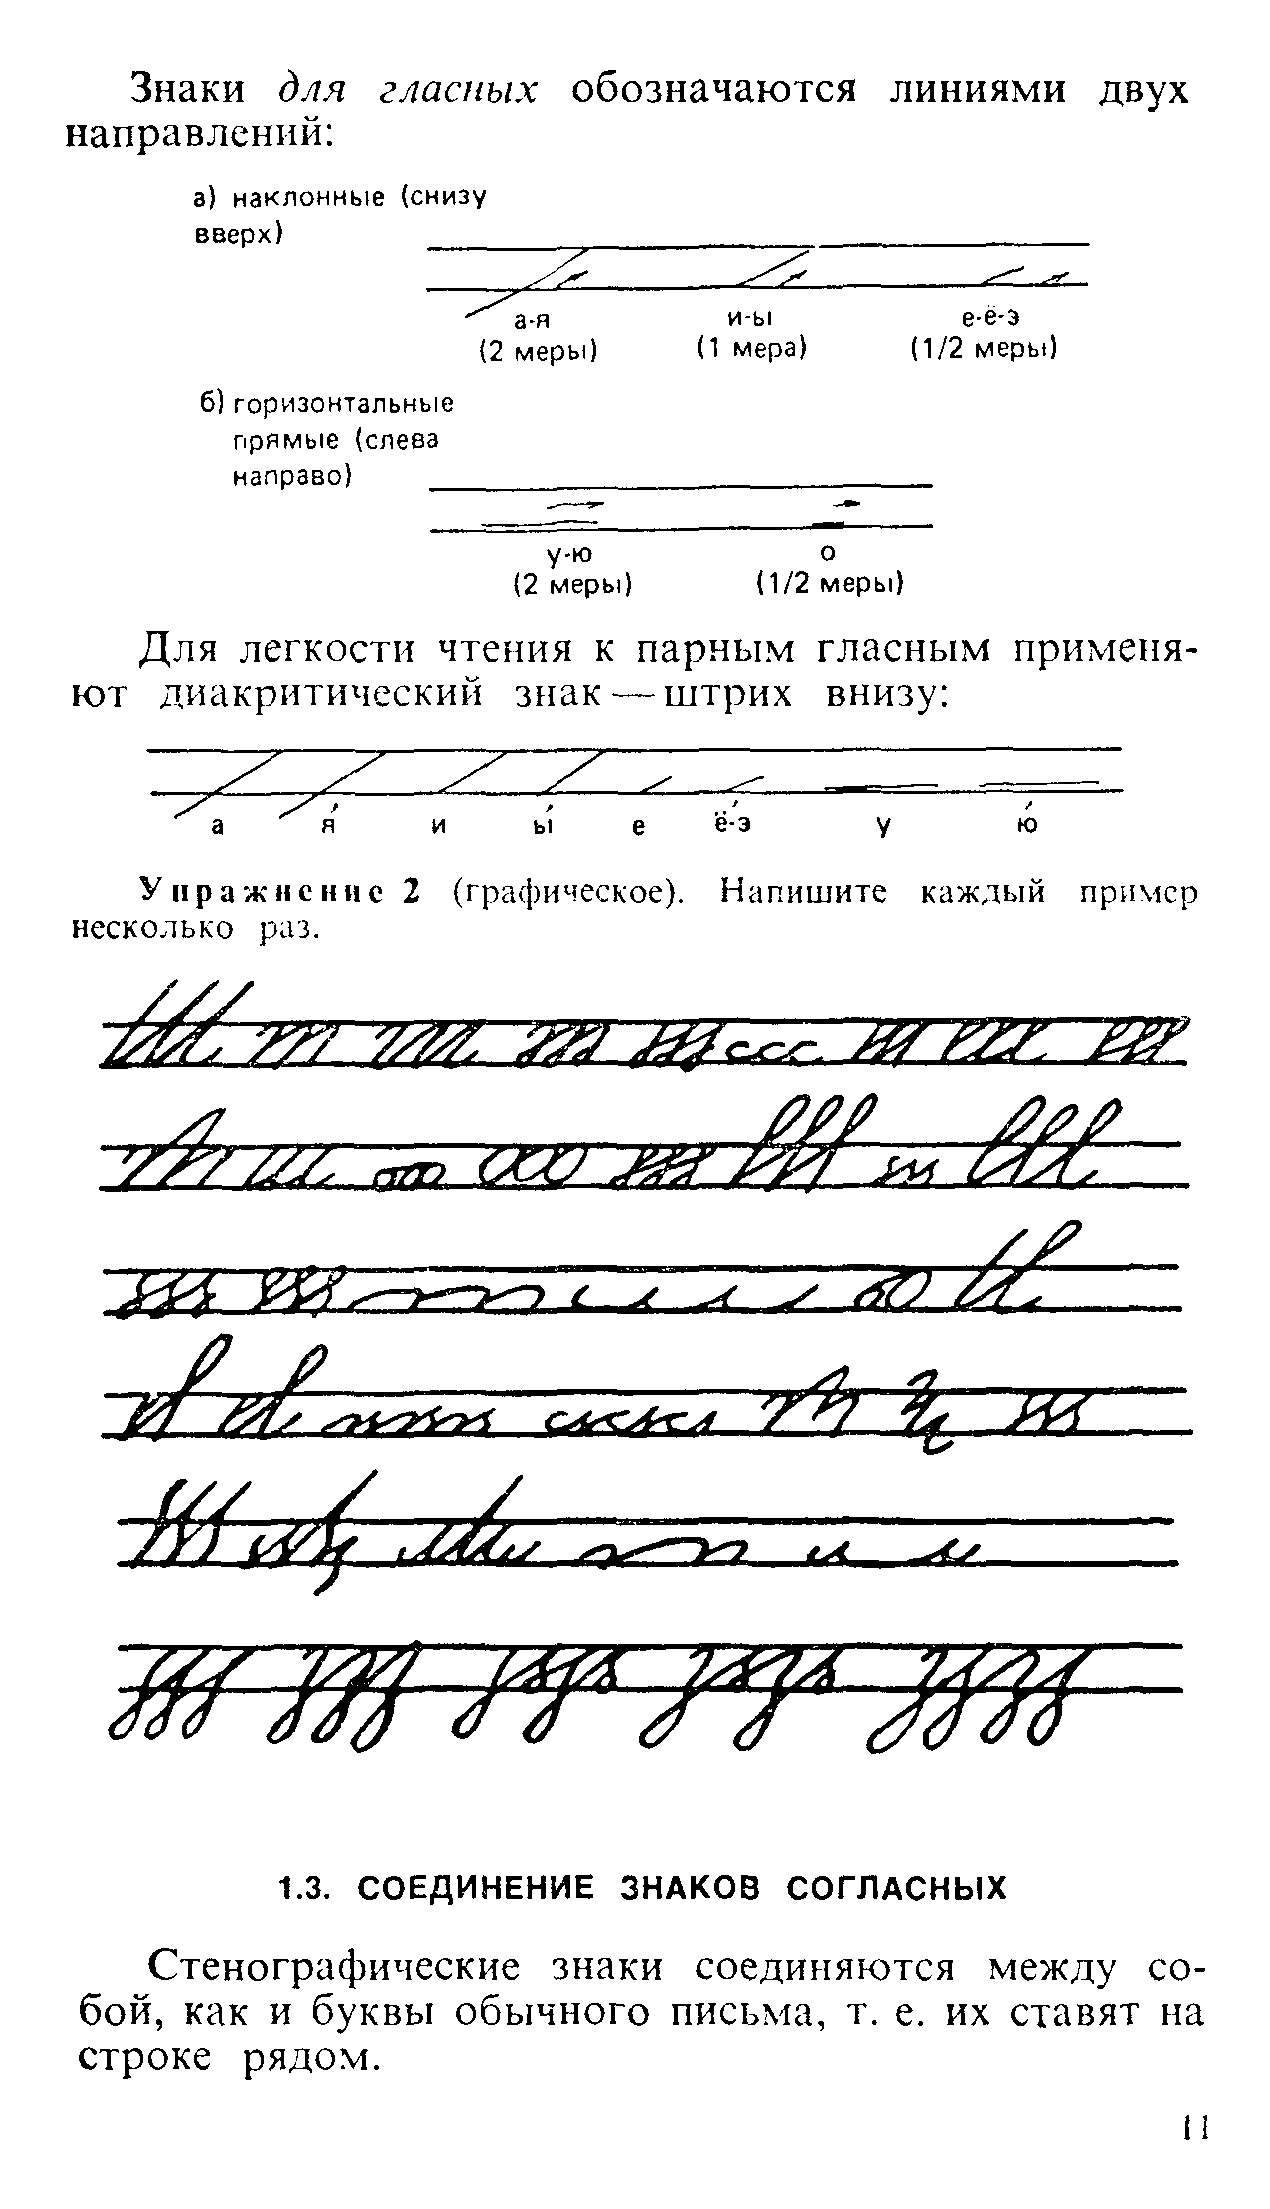 Знаки для гласных обозначаются линиями двух
направлений:
а) наклонные (снизу
вверх)
а-я и-ы е-ё-э
(2 меры) (1 мера) (1/2 меры)
б) горизонтальные
прямые (слева
направо)
у-ю о
(2 меры) (1/2 меры)
Для легкости чтения к парным гласным применя-
ют диакритический знак — штрих внизу:
а я и ы е ё-э у ю
Упражнение 2 (графическое). Напишите каждый пример
несколько раз.
1.3. СОЕДИНЕНИЕ ЗНАКОВ СОГЛАСНЫХ
Стенографические знаки соединяются между со-
бой, как и буквы обычного письма, т. е. их ставят на
строке рядом.
11